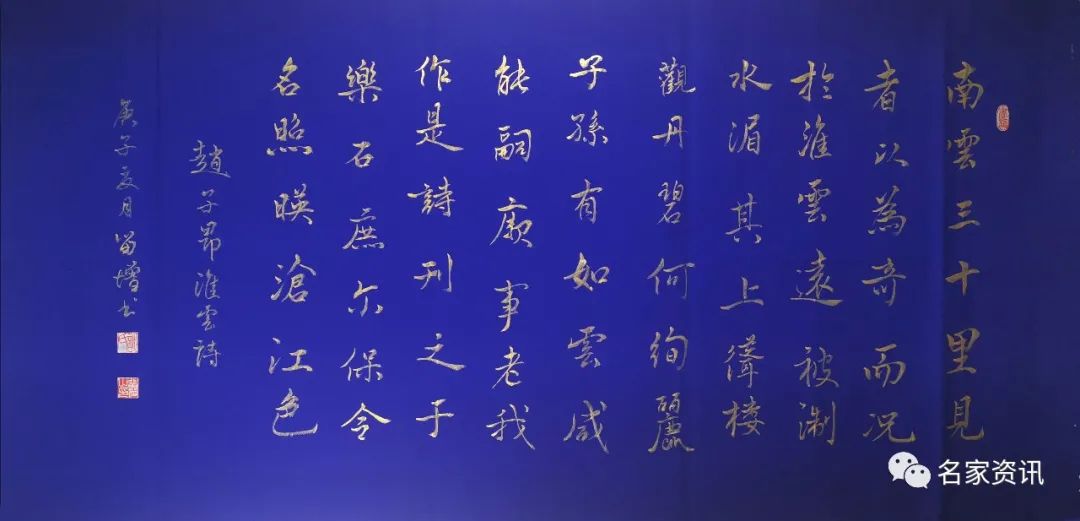 南雲三十里見
者以為奇而况
於淮雲遠被淛
水湄其上聳樓
觀丹碧何絢麗
子孫有如雲咸
能嗣厥事老我
作是詩刊之于
樂石庶尒保令
名照暎滄江色
趙子昂淮雲詩
庚子夏月
書
名家资讯